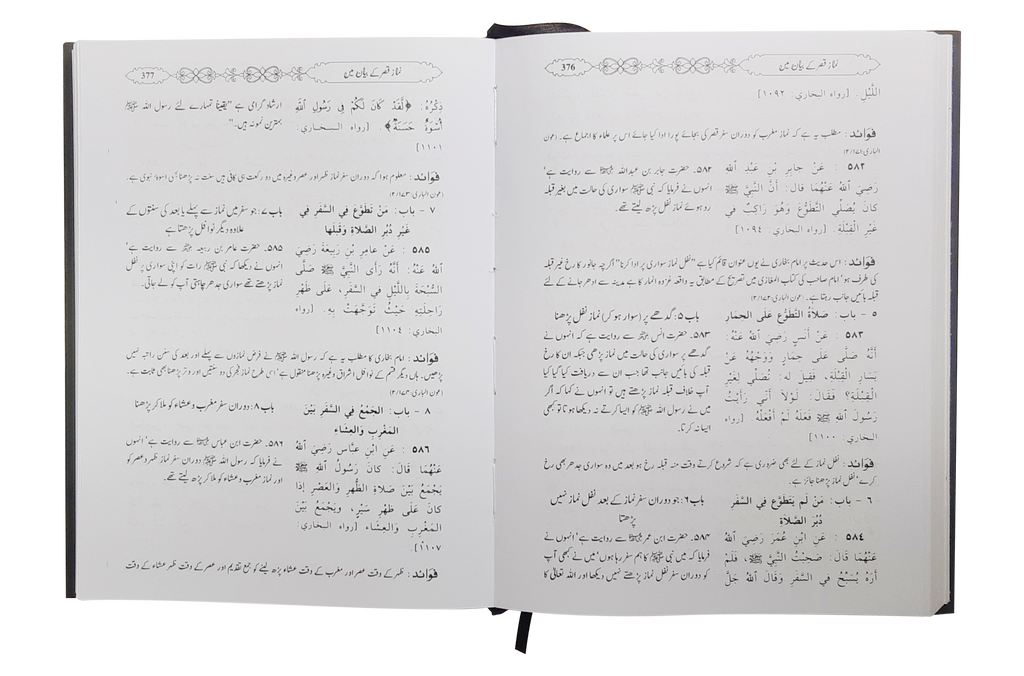 نماز قصر کے بیان میں
376
اللَّيْلِ. [رواه البخاري: ١٠٩٢]
فوَائد : مطلب یہ ہے کہ نماز مغرب کو دوران سفر قصر کی بجائے پورا ادا کیا جائے اس پر علماء کا اجماع ہے۔ (عون
الباری:٢/١٧١)
٥٨٢ : عَنْ جابِرِ بْنِ عَبْدِ اللهِ
رَضِيَ اللهُ عَنْهُمَا قالَ: أَنَّ النَّبِيَّ ﷺ
كانَ يُصَلِّي التَّطَوُّعَ وَهُوَ رَاكِبٌ في
غَيْرِ الْقِبْلَةِ. [رواه البخاري: ١٠٩٤]
۵۸۲۔ حضرت جابر بن عبداللہ ؓ سے روایت ہے'
انہوں نے فرمایا کہ نبی ﷺ سواری کی حالت میں بغیر قبلہ
رو ہوئے نماز نفل پڑھ لیتے تھے۔
فوَائد : اس حدیث پر امام بخاری نے یوں عنوان قائم کیا ہے "نفل نماز سواری پر ادا کرنا" اگرچہ جانور کا رخ غیر قبلہ
کی طرف ہو' امام صاحب کی کتاب المغازی میں تصریح کے مطابق یہ واقعہ غزوہ انمار کا ہے مدینہ سے ادھر جانے کے لئے
قبلہ بائیں جانب رہتا ہے۔ (عون الباری:٢/١٧٢)
٥ - باب: صَلاَةُ التَّطَوُّعِ عَلَى الحِمَارِ
باب ۵: گدھے پر (سوار ہو کر) نماز نفل پڑھنا
٥٨٣ : عَنْ أَنَسٍ رَضِيَ اللهُ عَنْهُ:
أَنَّهُ صَلَّى عَلَى حِمَارٍ وَوَجْهُهُ عَنْ
يَسَارِ الْقِبْلَةِ، فَقِيلَ لَه: تُصَلِّي لِغَيْرِ
الْقِبْلَةِ؟ فَقَالَ: لَوْلاَ أَنِّي رَأَيْتُ
رَسُولَ اللهِ ﷺ فَعَلَهُ لَمْ أَفْعَلْهُ [رواه
البخاري: ١١٠٠]
۵۸۳۔ حضرت انس ؓ سے روایت ہے کہ انہوں نے
گدھے پر سواری کی حالت میں نماز پڑھی جبکہ ان کا رخ
قبلہ کی بائیں جانب تھا جب ان سے دریافت کیا گیا کیا
آپ خلاف قبلہ نماز پڑھتے ہیں تو انہوں نے کہا کہ اگر
میں نے رسول اللہ ﷺ کو ایسا کرتے نہ دیکھا ہوتا تو کبھی
ایسا نہ کرتا۔
فوَائد : نفل نماز کے لئے بھی ضروری ہے کہ شروع کرتے وقت منہ قبلہ رخ ہو بعد میں وہ سواری جدھر بھی رخ
کرے' نفل نماز پڑھنا جائز ہے۔
٦ - باب: مَنْ لَم يَتَطَوَّع في السَّفَرِ
دُبُرَ الصَّلاَة
باب ۶: جو دوران سفر نماز کے بعد نفل نماز نہیں
پڑھتا
٥٨٤ : عَنِ ابْنِ عُمَرَ رَضِيَ اللهُ
عَنْهُمَا قَالَ: صَحِبْتُ النَّبِيَّ ﷺ، فَلَمْ
أَرَهُ يُسَبِّحُ في السَّفَرِ وَقَالَ اللهُ جَلَّ
۵۸۴۔ حضرت ابن عمر ؓ سے روایت ہے' انہوں نے
فرمایا کہ میں نبی ﷺ کا ہم سفر رہا ہوں' میں نے کبھی آپ
کو دوران سفر نفل نماز پڑھتے نہیں دیکھا اور اللہ تعالیٰ کا
نماز قصر کے بیان میں
377
ذِكْرُهُ: ﴿لَقَدْ كَانَ لَكُمْ فِي رَسُولِ اللهِ
أُسْوَةٌ حَسَنَةٌ﴾. [رواه البخاري:
١١٠١]
ارشاد گرامی ہے "یقیناً تمہارے لئے رسول اللہ ﷺ
بہترین نمونہ ہیں۔"
فوَائد : معلوم ہوا کہ دوران سفر نماز ظہر اور عصر وغیرہ میں دو رکعت ہی کافی ہیں سنت نہ پڑھنا ہی اسوۂ نبوی ہے۔
(عون الباری:٢/١٧٣)
٧ - باب: مَنْ تَطَوَّعَ في السَّفَرِ في
غَيْرِ دُبُرِ الصَّلاَةِ وَقَبْلَها
باب ۷: جو سفر میں نماز سے پہلے یا بعد کی سنتوں کے
علاوہ دیگر نوافل پڑھتا ہے
٥٨٥ : عَن عامِرِ بْنِ رَبِيعَةَ رَضِيَ
اللهُ عَنْهُ: أَنَّهُ رَأَى النَّبِيَّ ﷺ صَلَّى
السُّبْحَةَ بِاللَّيْلِ في السَّفَرِ، عَلَى ظَهْرِ
رَاحِلَتِهِ حَيْثُ تَوَجَّهَتْ بِهِ. [رواه
البخاري: ١١٠٤]
۵۸۵۔ حضرت عامر بن ربیعہ ؓ سے روایت ہے'
انہوں نے دیکھا کہ نبی ﷺ رات کو اپنی سواری پر نفل
نماز پڑھتے تھے سواری جدھر چاہتی آپ کو لے جاتی۔
فوَائد : امام بخاری کا مطلب یہ ہے کہ رسول اللہ ﷺ نے فرض نمازوں سے پہلے اور بعد کی سنن راتبہ نہیں
پڑھیں۔ ہاں دیگر قسم کے نوافل اشراق وغیرہ پڑھنا منقول ہے' اسی طرح نماز فجر کی دو سنتیں اور وتر پڑھنا بھی ثابت ہے۔
(عون الباری:٢/١٧٣)
٨ - باب: الجَمْعُ في السَّفَرِ بَيْنَ
المَغْرِبِ وَالعِشَاءِ
باب ۸: دوران سفر مغرب و عشاء کو ملا کر پڑھنا
٥٨٦ : عَنِ ابْنِ عَبَّاسٍ رَضِيَ اللهُ
عَنْهُمَا قَالَ: كانَ رَسُولُ اللهِ ﷺ
يَجْمَعُ بَيْنَ صَلاَةِ الظُّهْرِ وَالعَصْرِ إِذَا
كانَ عَلَى ظَهْرِ سَيْرٍ، وَيَجْمَعُ بَيْنَ
المَغْرِبِ وَالعِشَاءِ [رواه البخاري:
١١٠٧].
۵۸۶۔ حضرت ابن عباس ؓ سے روایت ہے' انہوں
نے فرمایا کہ رسول اللہ ﷺ دوران سفر نماز ظہر و عصر کو
اور نماز مغرب و عشاء کو ملا کر پڑھ لیتے تھے۔
فوَائد : ظہر کے وقت عصر اور مغرب کے وقت عشاء پڑھ لینے کو جمع تقدیم اور عصر کے وقت ظہر عشاء کے وقت